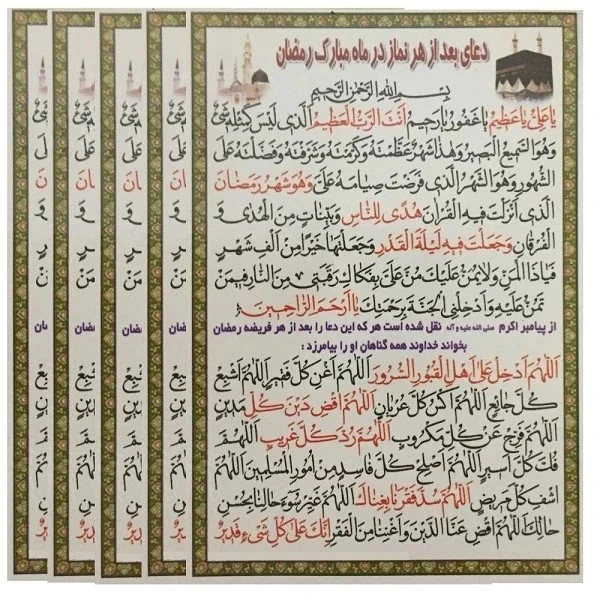 دعای بعد از هر نماز در ماه مبارک رمضان
بِسْمِ اللهِ الرَّحْمٰنِ الرَّحیمِ
یا عَلِیُّ یا عَظیمُ یا غَفُورُ یا رَحیمُ اَنْتَ الرَّبُّ الْعَظیمُ الَّذی لَیْسَ کَمِثْلِهِ شَیْئٌ
وَهُوَ السَّمیعُ الْبَصیرُ وَهٰذا شَهْرٌ عَظَّمْتَهُ وَکَرَّمْتَهُ وَشَرَّفْتَهُ وَفَضَّلْتَهُ عَلَی
الشُّهُورِ وَهُوَ الشَّهْرُ الَّذی فَرَضْتَ صِیامَهُ عَلَیَّ وَهُوَ شَهْرُ رَمَضانَ
الَّذی اَنْزَلْتَ فیهِ الْقُرْانَ هُدًی لِلنّاسِ وَبَیِّناتٍ مِنَ الْهُدٰی وَ
الْفُرْقانِ وَجَعَلْتَ فیهِ لَیْلَةَ الْقَدْرِ وَجَعَلْتَها خَیْرًا مِنْ اَلْفِ شَهْرٍ
فَیا ذَا الْمَنِّ وَلا یُمَنُّ عَلَیْکَ مُنَّ عَلَیَّ بِفَکاکِ رَقَبَتی مِنَ النّارِ فیمَنْ
تَمُنُّ عَلَیْهِ وَاَدْخِلْنِی الْجَنَّةَ بِرَحْمَتِکَ یا اَرْحَمَ الرّاحِمینَ
از پیامبر اکرم صلی الله علیه و آله نقل شده است هر که این دعا را بعد از هر فریضه رمضان
بخواند خداوند همه گناهان او را بیامرزد :
اَللّٰهُمَّ اَدْخِلْ عَلٰی اَهْلِ الْقُبُورِ السُّرُورَ اَللّٰهُمَّ اَغْنِ کُلَّ فَقیرٍ اَللّٰهُمَّ اَشْبِعْ
کُلَّ جائِعٍ اَللّٰهُمَّ اکْسُ کُلَّ عُرْیانٍ اَللّٰهُمَّ اقْضِ دَیْنَ کُلِّ مَدینٍ
اَللّٰهُمَّ فَرِّجْ عَنْ کُلِّ مَکْرُوبٍ اَللّٰهُمَّ رُدَّ کُلَّ غَریبٍ اَللّٰهُمَّ
فُکَّ کُلَّ اَسیرٍ اَللّٰهُمَّ اَصْلِحْ کُلَّ فاسِدٍ مِنْ اُمُورِ الْمُسْلِمینَ اَللّٰهُمَّ
اشْفِ کُلَّ مَریضٍ اَللّٰهُمَّ سُدَّ فَقْرَنا بِغِناکَ اَللّٰهُمَّ غَیِّرْ سُوءَ حالِنا بِحُسْنِ
حالِکَ اَللّٰهُمَّ اقْضِ عَنَّا الدَّیْنَ وَاَغْنِنا مِنَ الْفَقْرِ اِنَّکَ عَلٰی کُلِّ شَیْءٍ قَدیرٌ